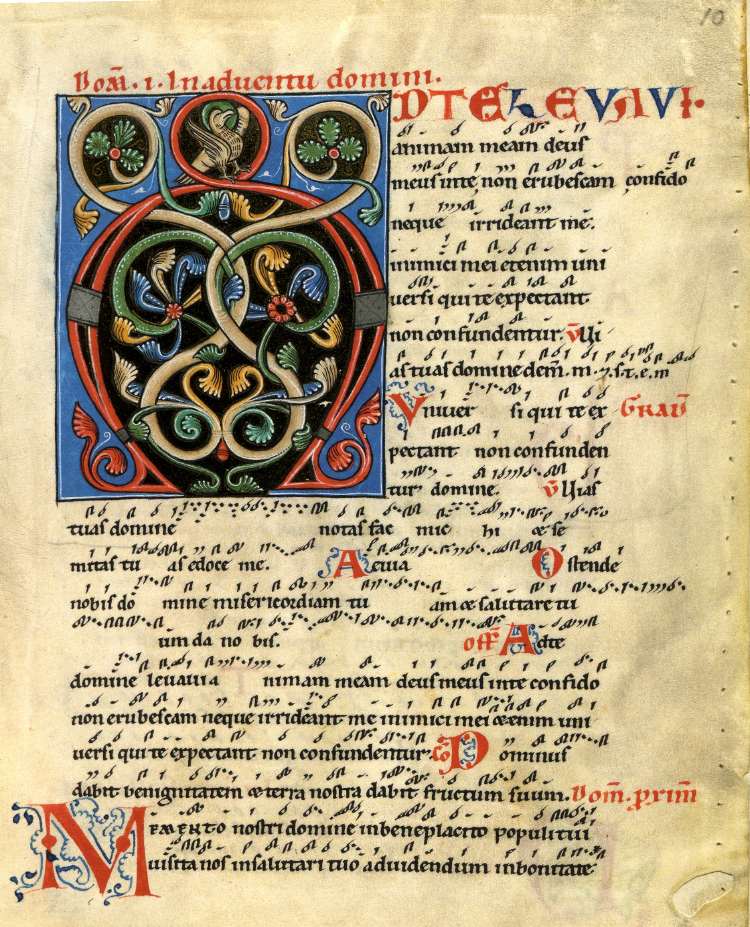 10
Dom̄. i. In adventu domini.
AD TE LEVAVI.
animam meam deus
meus inte non erubescam confido
neque irrideant me.
inimici mei etenim uni
versi qui te expectant
non confundentur. V̄ Vi
as tuas domine dem̄. m. 7. s. t. e. m
Vniver si qui te ex GRAD̄
pectant non confunden
tur domine. V̄ Vias
tuas domine notas fac mic hi et se
mitas tu as edoce me. Aevia Ostende
nobis do mine misericordiam tu am et salutare tu
um da no bis. off̄ Adte
domine levavi a nimam meam deus meus inte confido
non erubescam neque irrideant me inimici mei etenim uni
versi qui te expectant non confundentur. cō Dominus
dabit benignitatem et terra nostra dabit fructum suum. Dom̄. prim̄
MEMENTO nostri domine inbeneplacito populi tui
visita nos insalutari tuo advidendum inbonitate